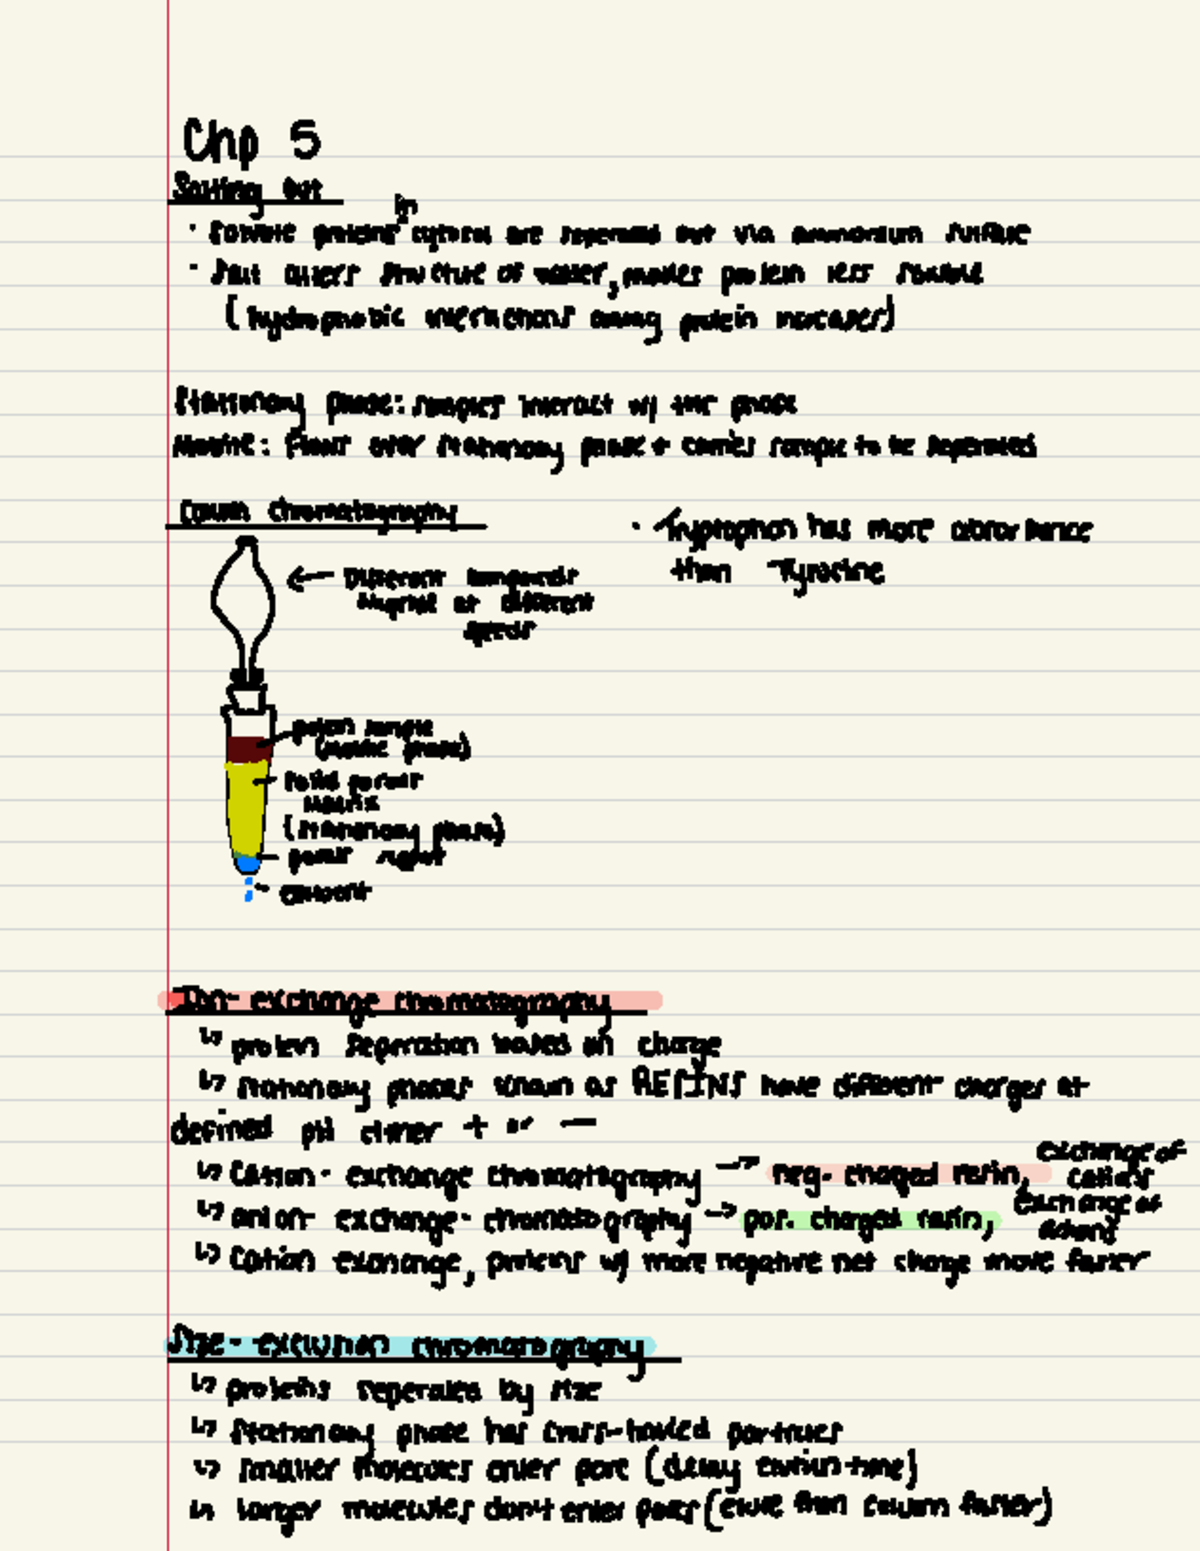 Chp 5
Salting Out
in
· Soluble proteins cytosol are seperated out via ammonium sulfate
· Salt alters structure of water, makes protein less soluble
(hydrophobic interactions among protein increases)
Stationary phase: samples interact w/ this phase
Mobile: Flows over stationary phase + carries sample to be seperated
Column Chromatography
· Tryptophan has more absorbance
than Tyrosine
← Different compounds
migrate at different
speeds
protein sample
(mobile phase)
Solid porous
matrix
(stationary phase)
porous support
effluent
Ion-exchange chromatography
↳ protein seperation based on charge
↳ stationary phases known as RESINS have different charges at
defined pH either + or —
↳ Cation-exchange chromatography → neg. charged resin, exchange of
cations
↳ anion exchange-chromatography → pos. charged resin, exchange of
anions
↳ Cation exchange, proteins w/ more negative net charge move faster
Size-exclusion chromatography
↳ proteins seperated by size
↳ Stationary phase has cross-linked particles
↳ smaller molecules enter pore (delay elution-time)
↳ larger molecules don't enter pores (elute from column faster)